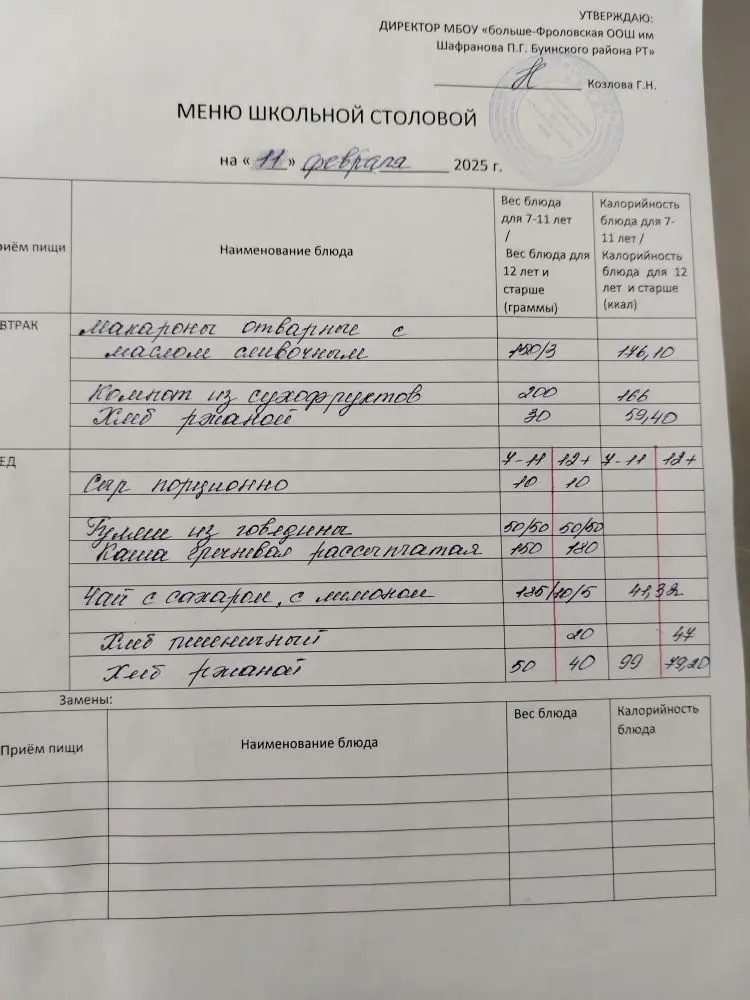 УТВЕРЖДАЮ:
ДИРЕКТОР МБОУ «больше-Фроловская ООШ им
Шафранова П.Г. Буинского района РТ»
Козлова Г.Н.
МЕНЮ ШКОЛЬНОЙ СТОЛОВОЙ
на « 11 » февраля 2025 г.
риём пищи
Наименование блюда
Вес блюда
для 7-11 лет
/
Вес блюда для
12 лет и
старше
(граммы)
Калорийность
блюда для 7-
11 лет /
Калорийность
блюда для 12
лет и старше
(ккал)
ВТРАК
Макароны отварные с
маслом сливочным 150/3 176,10
Компот из сухофруктов 200 166
Хлеб ржаной 30 59,40
ЕД
7-11 12+ 7-11 12+
Сыр порционно 10 10
Гуляш из говядины 50/50 50/50
Каша гречневая рассыпчатая 150 180
Чай с сахаром, с лимоном 185/10/5 41,32
Хлеб пшеничный 20 47
Хлеб ржаной 50 40 99 79,20
Замены:
Приём пищи
Наименование блюда
Вес блюда
Калорийность
блюда